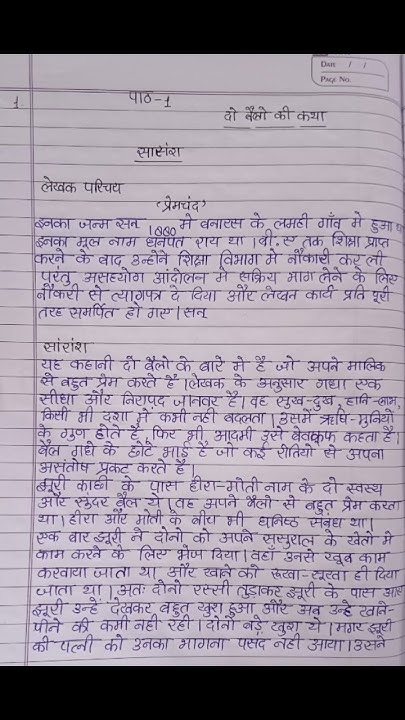 Date / /
Page No.
1
पाठ-1
दो बैलो की कथा
सारांश
लेखक परिचय
'प्रेमचंद'
इनका जन्म सन् 1880 मे बनारस के लमही गाँव मे हुआ था
इनका मूल नाम धनपत राय था । बी.ए तक शिक्षा प्राप्त
करने के बाद उन्होने शिक्षा विभाग मे नौकारी कर ली
परंतु असहयोग आंदोलन मे सक्रिय भाग लेने के लिए
नौकरी से त्यागपत्र दे दिया और लेखन कार्य प्रति पूरी
तरह समर्पित हो गए । सन्
सांरांश
यह कहानी दो बैलो के बारे मे है जो अपने मालिक
से बहुत प्रेम करते है । लेखक के अनुसार गधा एक
सीधा और निरापद जानवर है । वह सुख-दुख, हानि-लाभ,
किसी भी दशा मे कभी नही बदलता । उसमें ऋषि-मुनियो
के गुण होते है, फिर भी आदमी उसे बेवकूफ कहता है ।
बैल गधे के छोटे भाई है जो कई रीतियो से अपना
असंतोष प्रकट करते है ।
झूरी काछी के पास हीरा-मोती नाम के दो स्वस्थ
और सुंदर बैल थे । वह अपने बैलो से बहुत प्रेम करता
था । हीरा और मोती के बीच भी घनिष्ठ संबंध था ।
एक बार झूरी ने दोनो को अपने ससुराल के खेतो मे
काम करने के लिए भेज दिया । वहाँ उनसे खूब काम
करवाया जाता था और खाने को रूखा-सूखा ही दिया
जाता था । अतः दोनो रस्सी तुड़ाकर झूरी के पास आए
झूरी उन्हे देखकर बहुत खुश हुआ और अब उन्हे खाने-
पीने की कमी नही रही । दोनो बड़े खुश थे । मगर झूरी
की पत्नी को उनका भागना पसंद नही आया । उसने